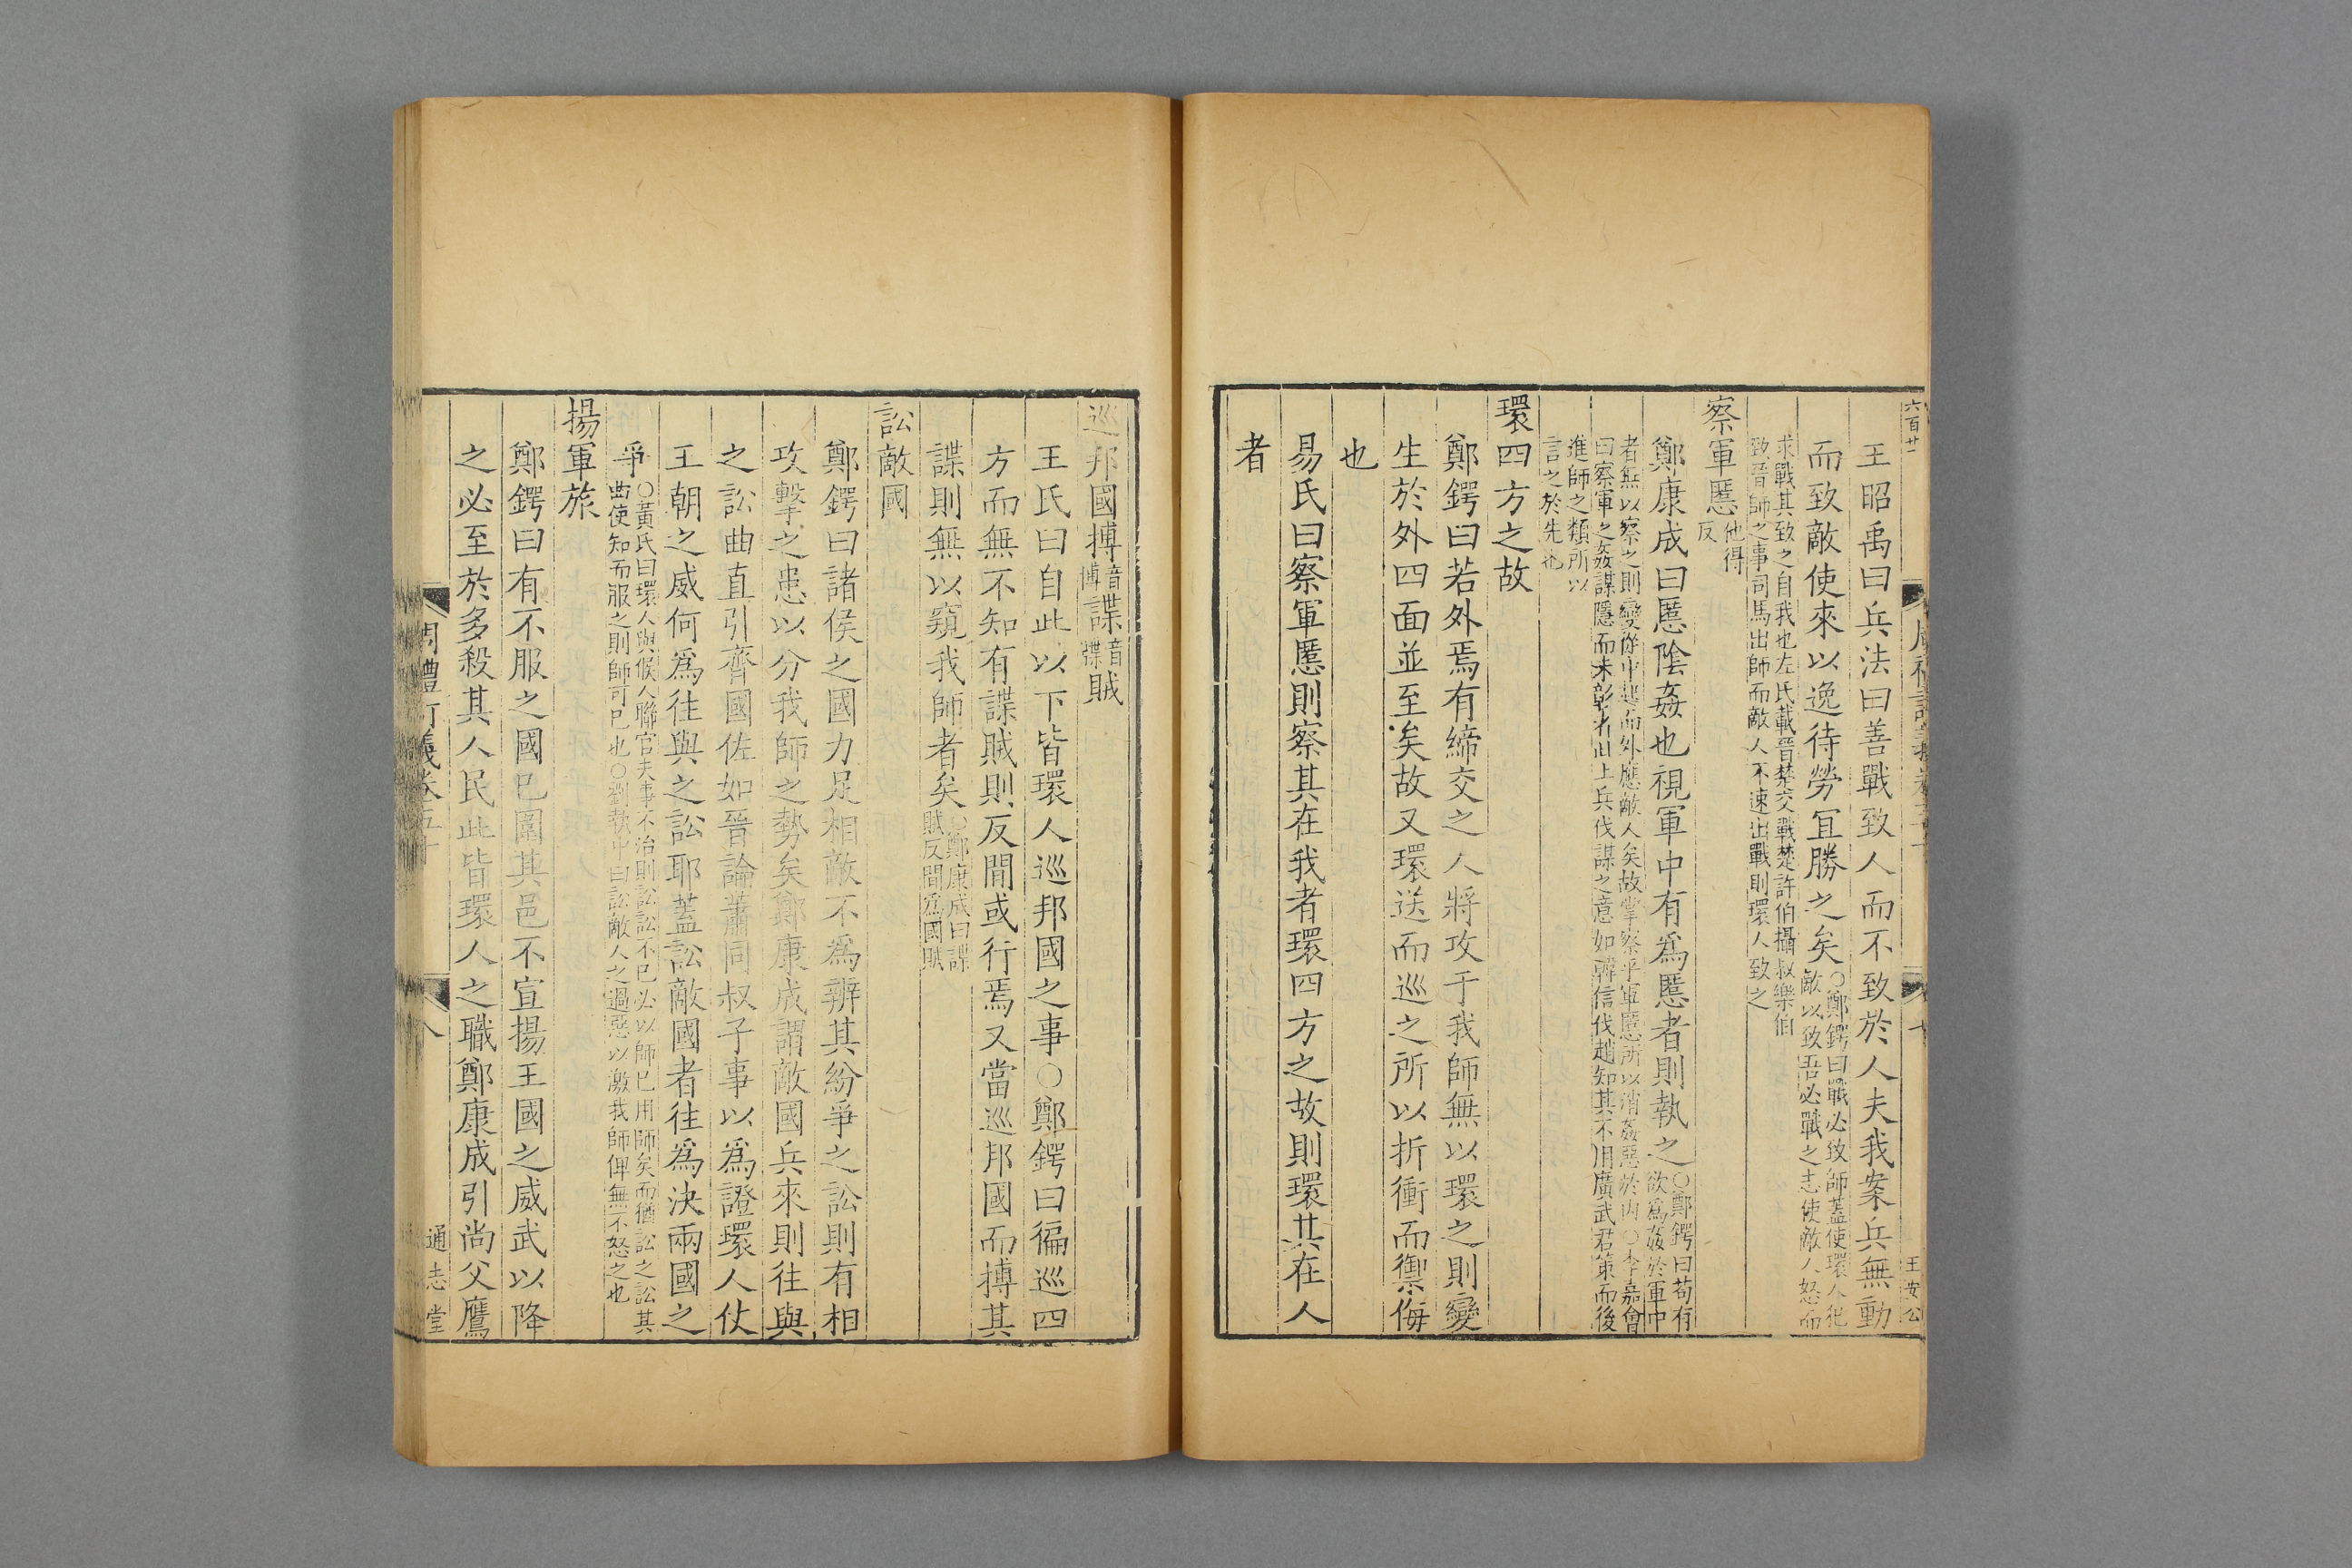 六百廿
王昭禹曰兵法曰善戰致人而不致於人夫我案兵無動
而致敵使來以逸待勞宜勝之矣○鄭鍔曰戰必致師蓋使環人犯
敵以致吾必戰之志使敵人怒而
求戰其致之自我也左氏載晉楚交戰楚許伯攝叔樂伯
致晉師之事司馬出師而敵人不速出戰則環人致之
察軍慝他得
反
鄭康成曰慝陰姦也視軍中有為慝者則執之○鄭鍔曰苟有
欲為姦於軍中
者無以察之則變從中起而外應敵人矣故掌察乎軍慝所以消姦惡於内○李嘉會
曰察軍之姦謀隱而未彰者此上兵伐謀之意如韓信伐趙知其不用廣武君策而後
進師之類所以
言之於先也
環四方之故
鄭鍔曰若外焉有締交之人將攻于我師無以環之則變
生於外四面並至矣故又環送而巡之所以折衝而禦侮
也
易氏曰察軍慝則察其在我者環四方之故則環其在人
者
王汝公
巡邦國搏音
博諜音
牒賊
王氏曰自此以下皆環人巡邦國之事○鄭鍔曰徧巡四
方而無不知有諜賊則反間或行焉又當巡邦國而搏其
諜則無以窺我師者矣○鄭康成曰諜
賊反間為國賊
訟敵國
鄭鍔曰諸侯之國力足相敵不為辨其紛爭之訟則有相
攻擊之患以分我師之勢矣鄭康成謂敵國兵來則往與
之訟曲直引齊國佐如晉論蕭同叔子事以為證環人仗
王朝之威何為往與之訟耶蓋訟敵國者往為決兩國之
爭○黃氏曰環人與候人聯官夫事不治則訟訟不已必以師已用師矣而猶訟之訟其
曲使知而服之則師可已也○劉執中曰訟敵人之過惡以激我師俾無不怒之也
揚軍旅
鄭鍔曰有不服之國已圍其邑不宣揚王國之威武以降
之必至於多殺其人民此皆環人之職鄭康成引尚父鷹
周禮訂義卷五十 八 通志堂